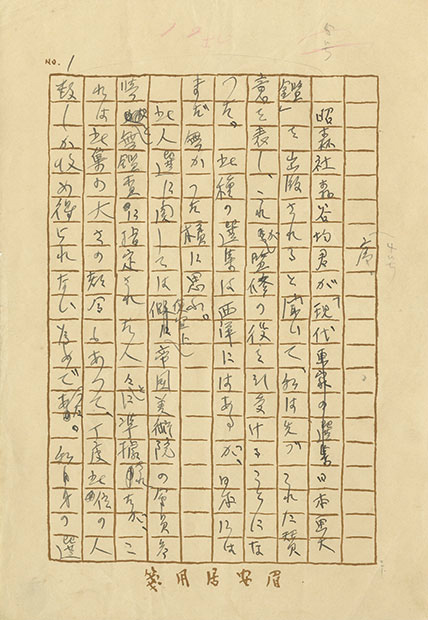 NO. 1
序
昭森社森谷均君が「現代画家の選集日本画大
鑑」を出版されると聞いて、私は先づこれに賛
意を表し、これが監修の役を引受けることにな
つた。此種の選集は西洋にはあるが、日本には
まだ無かつた様に思ふ。
此人選に関しては便宜上帝国美術院の会員
無鑑査に指定された人々に準拠したが、こ
れは此集の大きの都合もあつて、丁度此位の人
数しか収め得られないためである。私自身の選
眉安居用箋